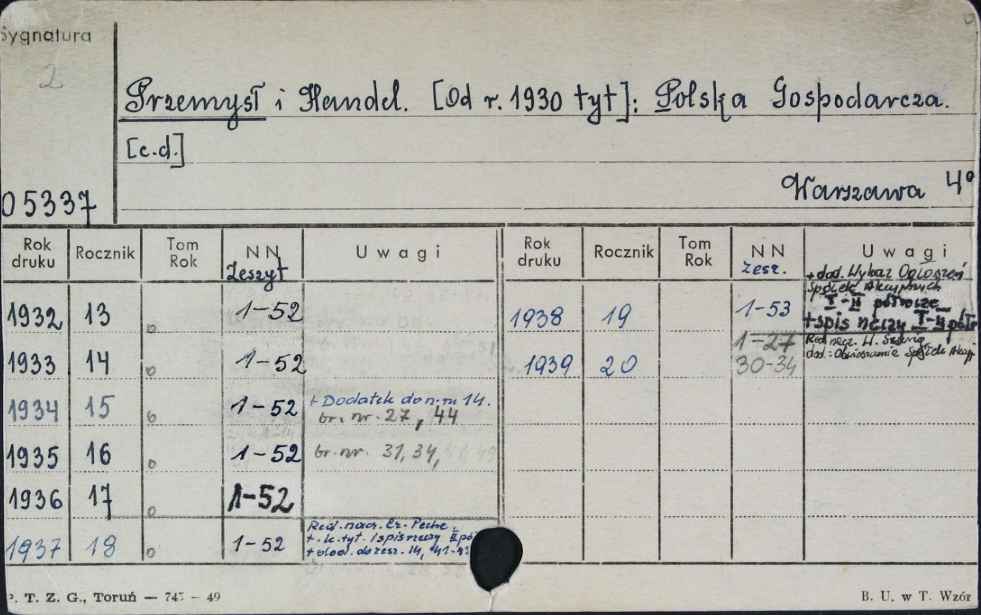 Sygnatura
2
Przemysł i Handel. [Od r. 1930 tyt]: Polska Gospodarcza.
[c.d.]
05337
Warszawa 4°
Rok druku Rocznik Tom Rok NN Zeszyt Uwagi Rok druku Rocznik Tom Rok NN zesz. Uwagi
+ dod. Wykaz Ogłoszeń
Spółek Akcyjnych
I-II półrocze
1932 13 0 1-52 1938 19 1-53 + spis rzeczy I-II półr
1-27
1933 14 0 1-52 1939 20 30-34 dod.: Spółek Akcyj.
1934 15 0 1-52 + Dodatek do n-ru 14.
br. nr. 27, 44
1935 16 0 1-52 br. nr. 31, 34,
1936 17 0 1-52
1937 18 0 1-52 Red. nacz. Cz. Peche.
+ k. tyt. i spis rzeczy II pó
+ dod. do zesz. 14,
P. T. Z. G., Toruń — 747 – 49
B. U. w T. Wzór